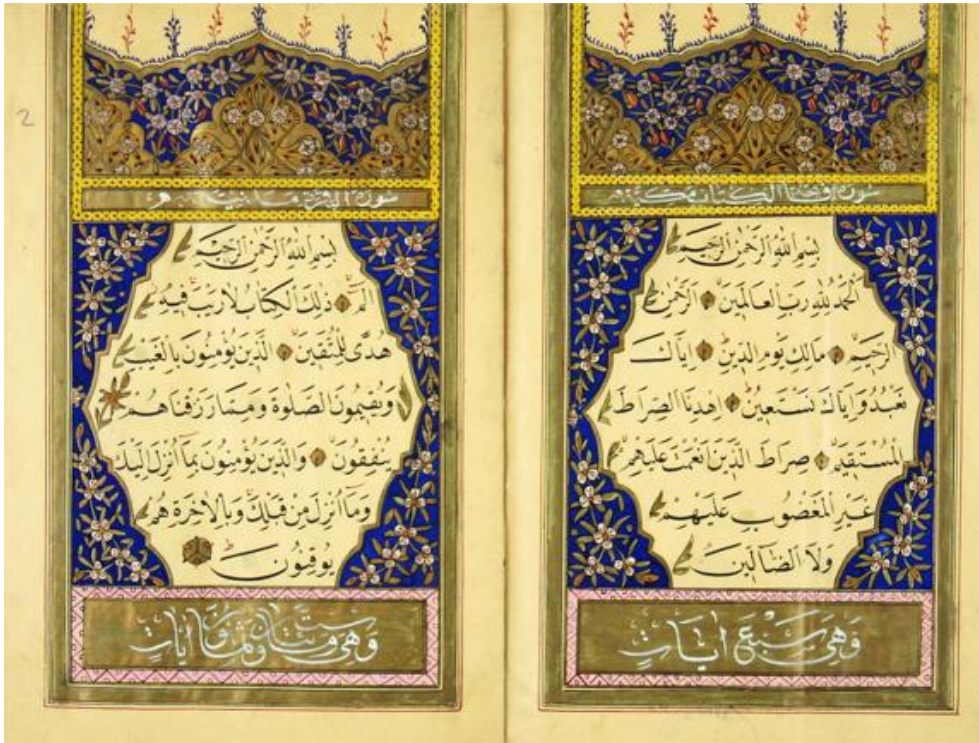 سورة فاتحة الكتاب مكية
بسم الله الرحمن الرحيم
الحمد لله رب العالمين الرحمن
الرحيم مالك يوم الدين اياك
نعبد واياك نستعين اهدنا الصراط
المستقيم صراط الذين انعمت عليهم
غير المغضوب عليهم
ولا الضالين
وهي سبع ايات
2
سورة البقرة مدنية
بسم الله الرحمن الرحيم
الم ذلك الكتاب لا ريب فيه
هدى للمتقين الذين يؤمنون بالغيب
ويقيمون الصلوة ومما رزقناهم
ينفقون والذين يؤمنون بما انزل اليك
وما انزل من قبلك وبالاخرة هم
يوقنون
وهي ايات